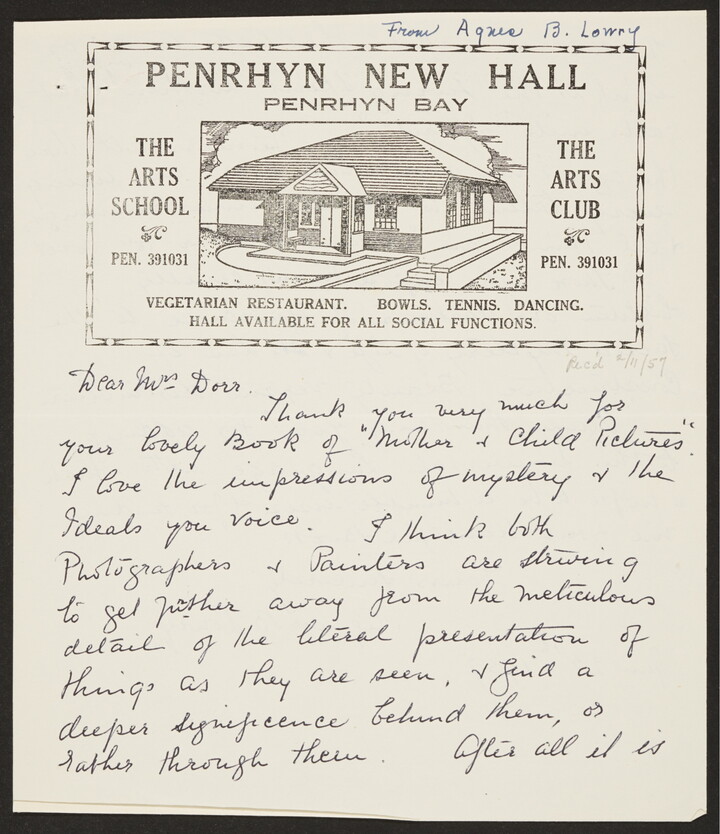 From Agnes B. Lowry
PENRHYN NEW HALL
PENRHYN BAY
THE
ARTS
SCHOOL
PEN. 391031
THE
ARTS
CLUB
PEN. 391031
VEGETARIAN RESTAURANT. BOWLS. TENNIS. DANCING.
HALL AVAILABLE FOR ALL SOCIAL FUNCTIONS.
Rec'd 2/11/57
Dear Mrs Dorr.
Thank you very much for
your lovely Book of "Mother & Child Pictures".
I love the impressions of mystery & the
Ideals you voice. I think both
Photographers & Painters are striving
to get further away from the meticulous
detail of the literal presentation of
things as they are seen, & find a
deeper significence behind them, or
rather through them. After all it is